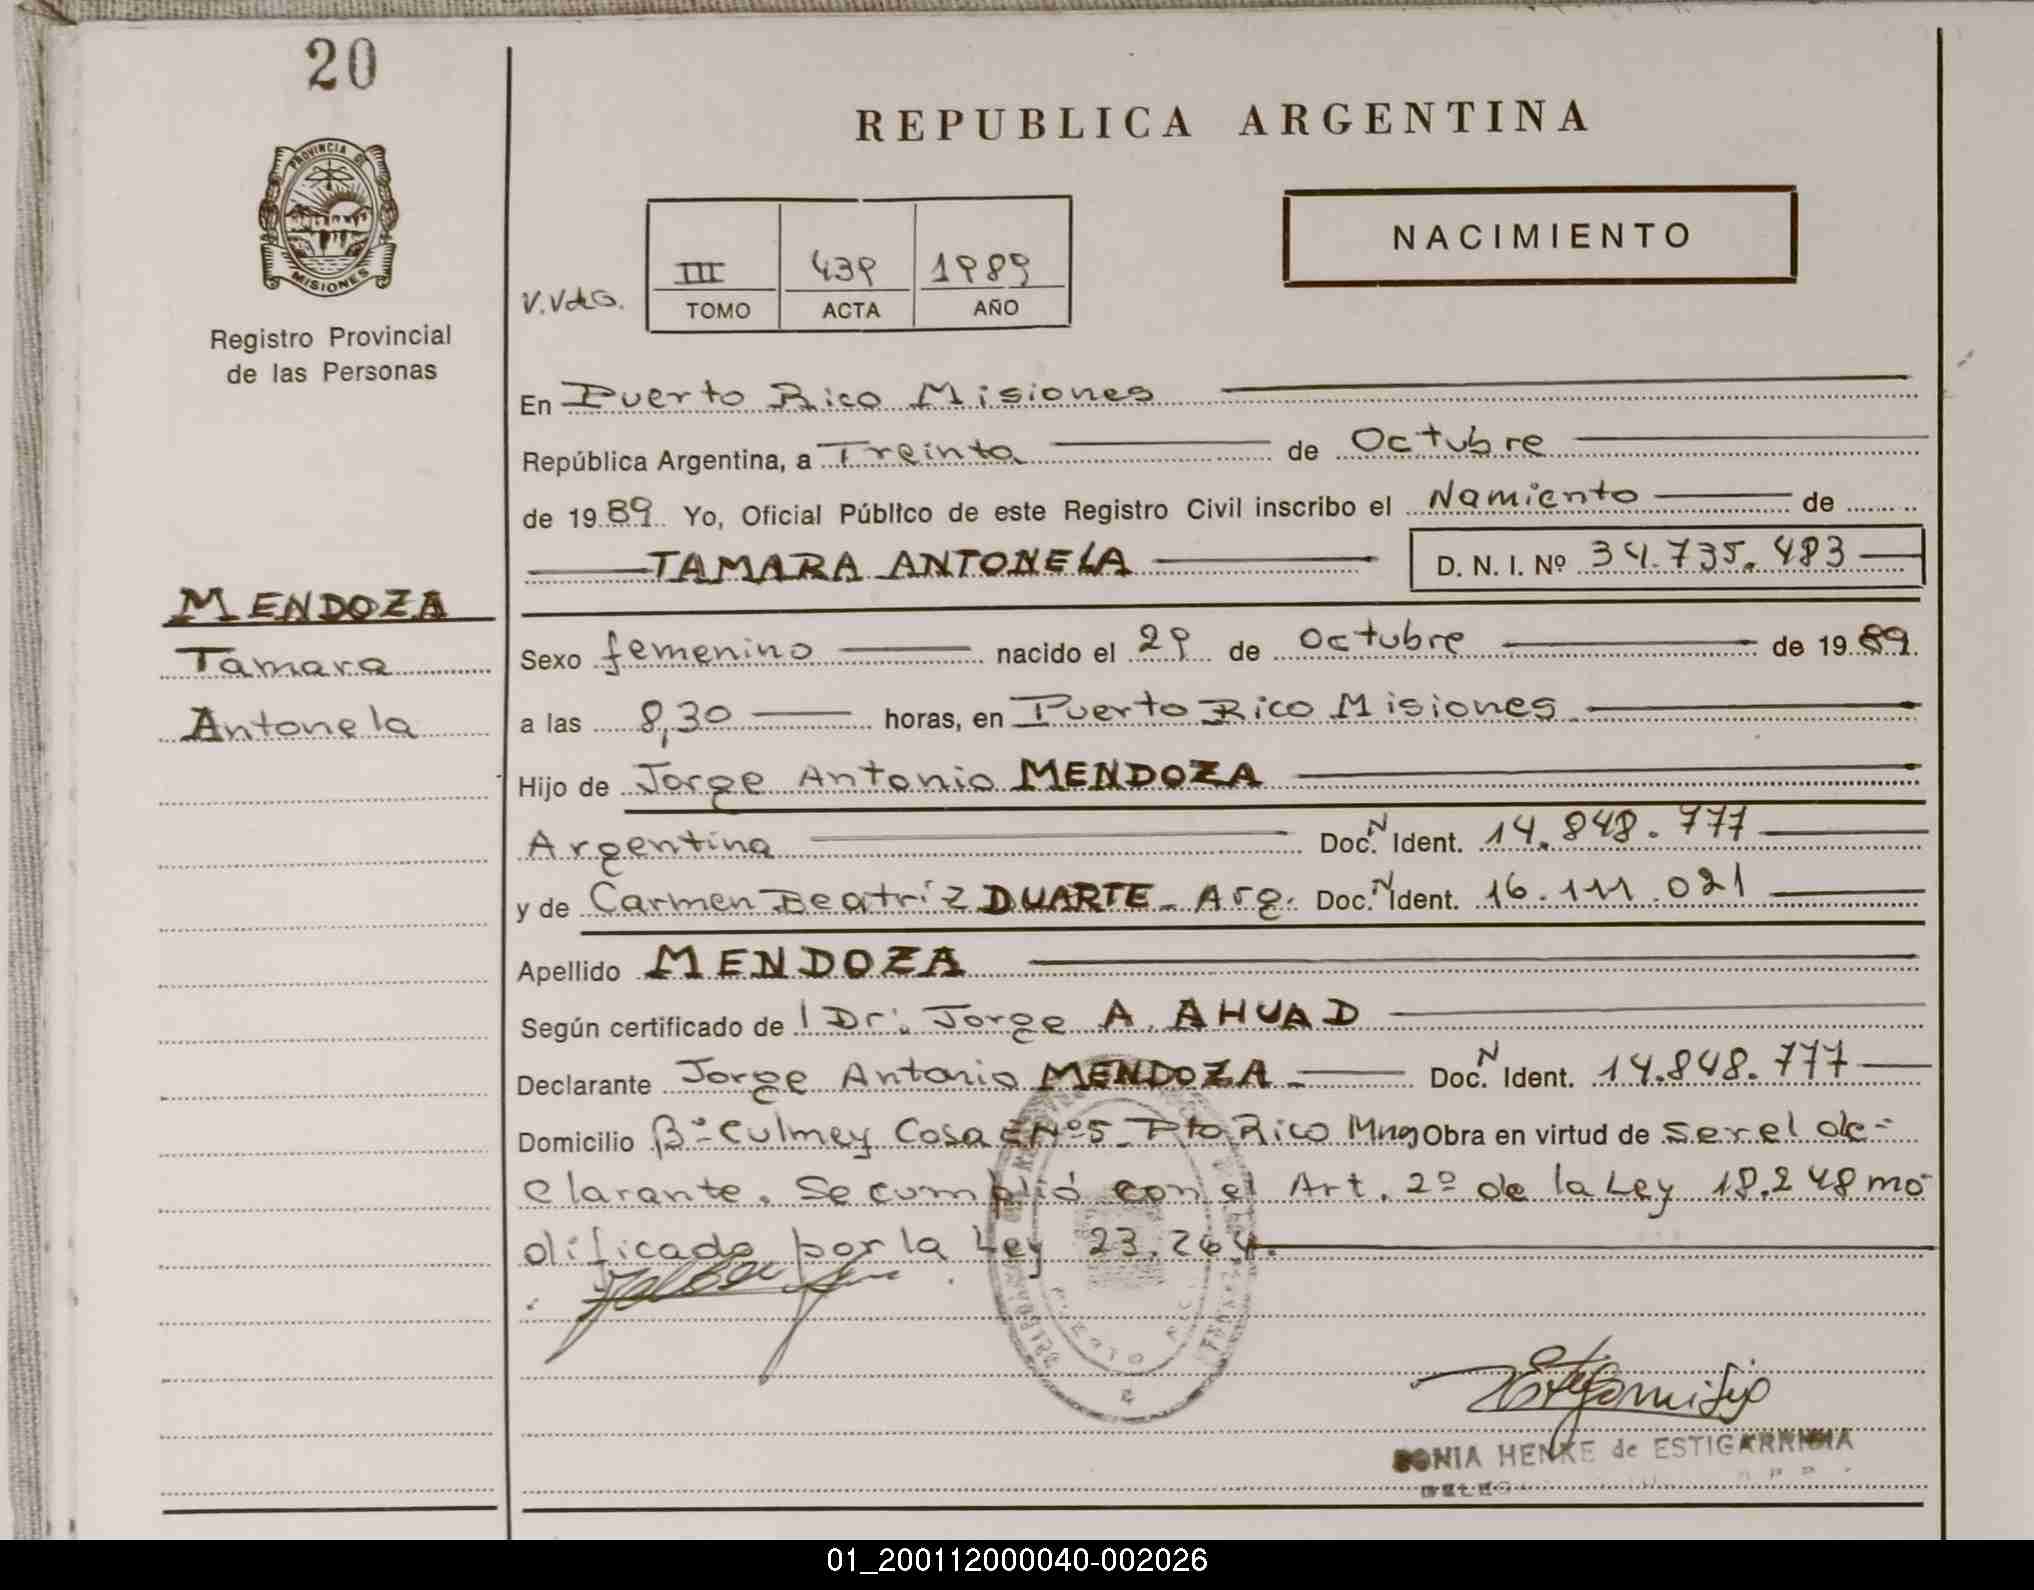 20
REPUBLICA ARGENTINA
PROVINCIA DE
MISIONES
Registro Provincial
de las Personas
NACIMIENTO
V.VdG.
III 439 1989
TOMO ACTA AÑO
En Puerto Rico Misiones
República Argentina, a Treinta de Octubre
de 1989 Yo, Oficial Público de este Registro Civil inscribo el Namiento de
TAMARA ANTONELA D. N. I. Nº 34.735.483
MENDOZA
Tamara
Antonela
Sexo femenino nacido el 29 de Octubre de 1989.
a las 8,30 horas, en Puerto Rico Misiones
Hijo de Jorge Antonio MENDOZA
Argentina Doc. N Ident. 14.848.777
y de Carmen Beatriz DUARTE - Arg. Doc. N Ident. 16.111.021
Apellido MENDOZA
Según certificado de l Dr. Jorge A. AHUAD
Declarante Jorge Antonio MENDOZA - Doc. N Ident. 14.848.777
Domicilio Bº Culmey Casa Nº5 - Pto Rico Mnes Obra en virtud de ser el de-
clarante. Se cumplió con el Art. 2º de la Ley 18.248 mo-
dificado por la Ley 23.264.
SONIA HENKE de ESTIGARRIBIA
01_200112000040-002026